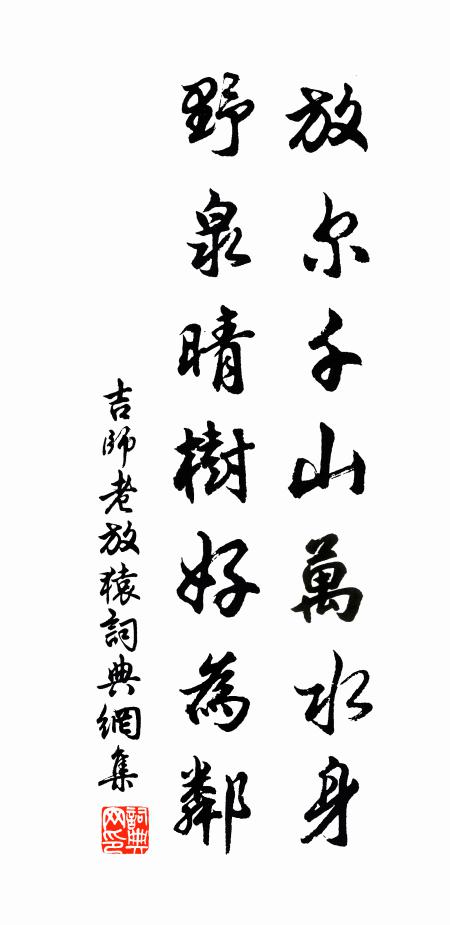 放尔千山萬水身
野泉晴樹好為鄰
吉師老放猿詞典網集
詞典網印